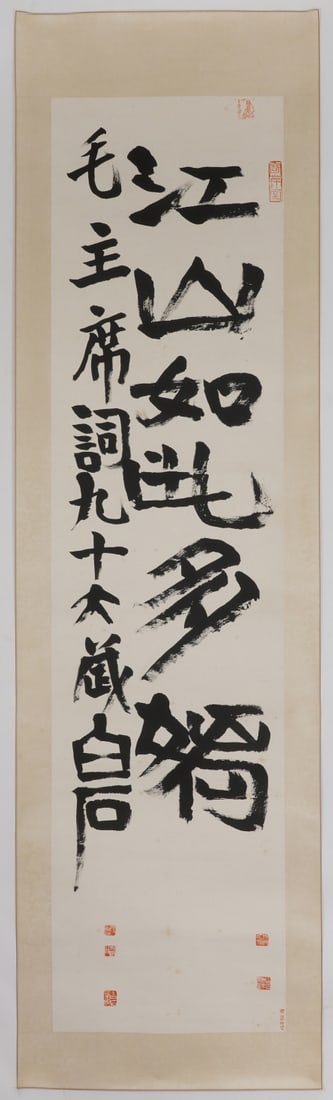 江山如此多嬌
毛主席詞九十六歲白石